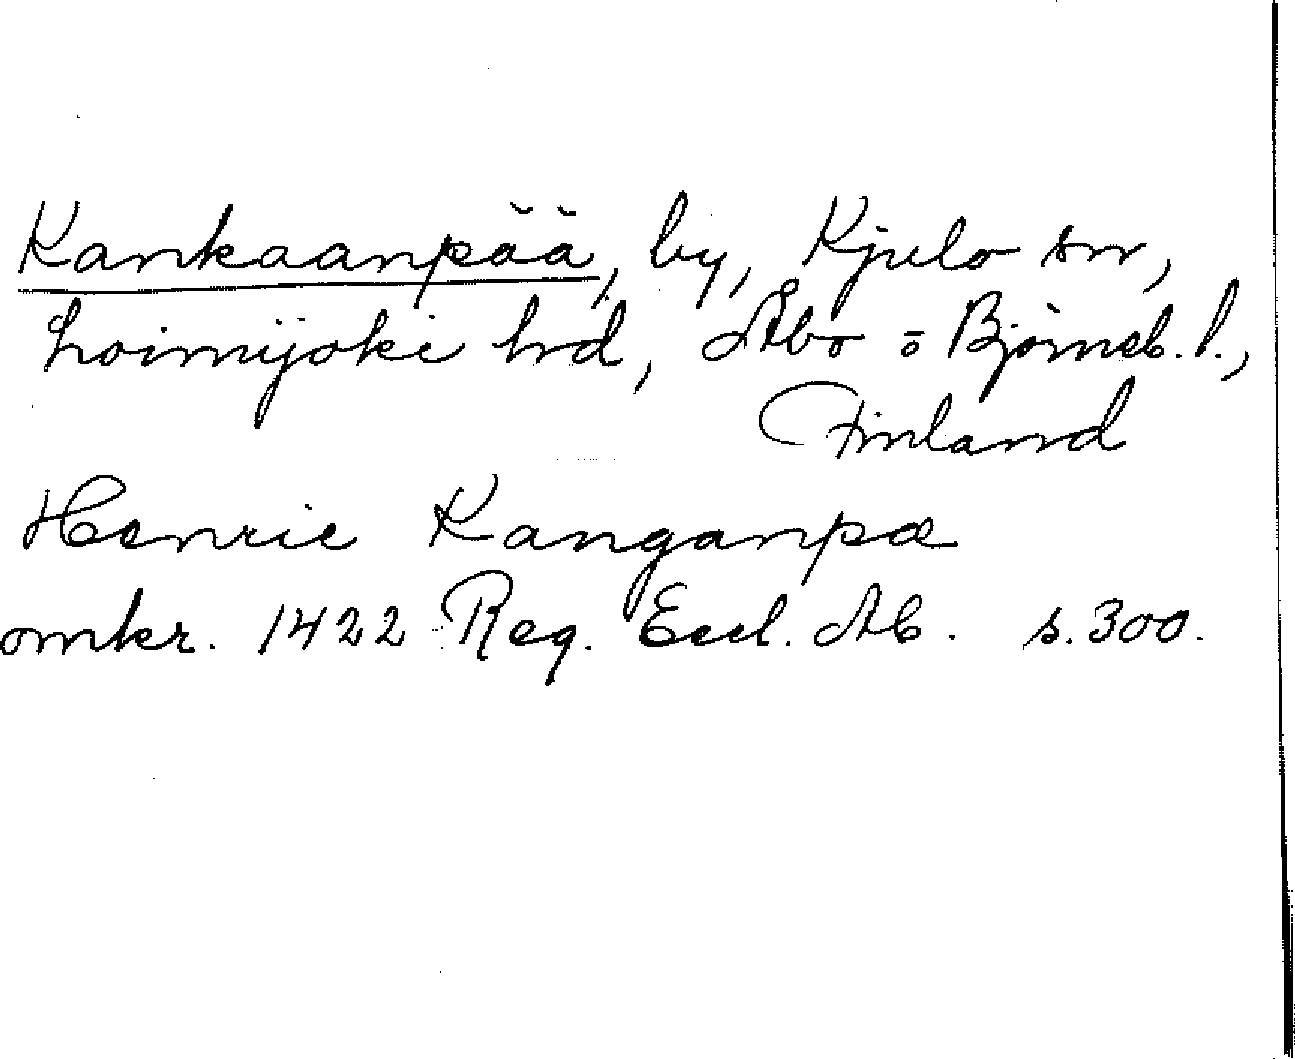 Kankaanpää, by, Kjulo sn,
Loimijoki hd, Åbo o Björneb. l.,
Finland
Henric Kanganpæ
omkr. 1422 Reg. Eccl. Ab. s. 300.